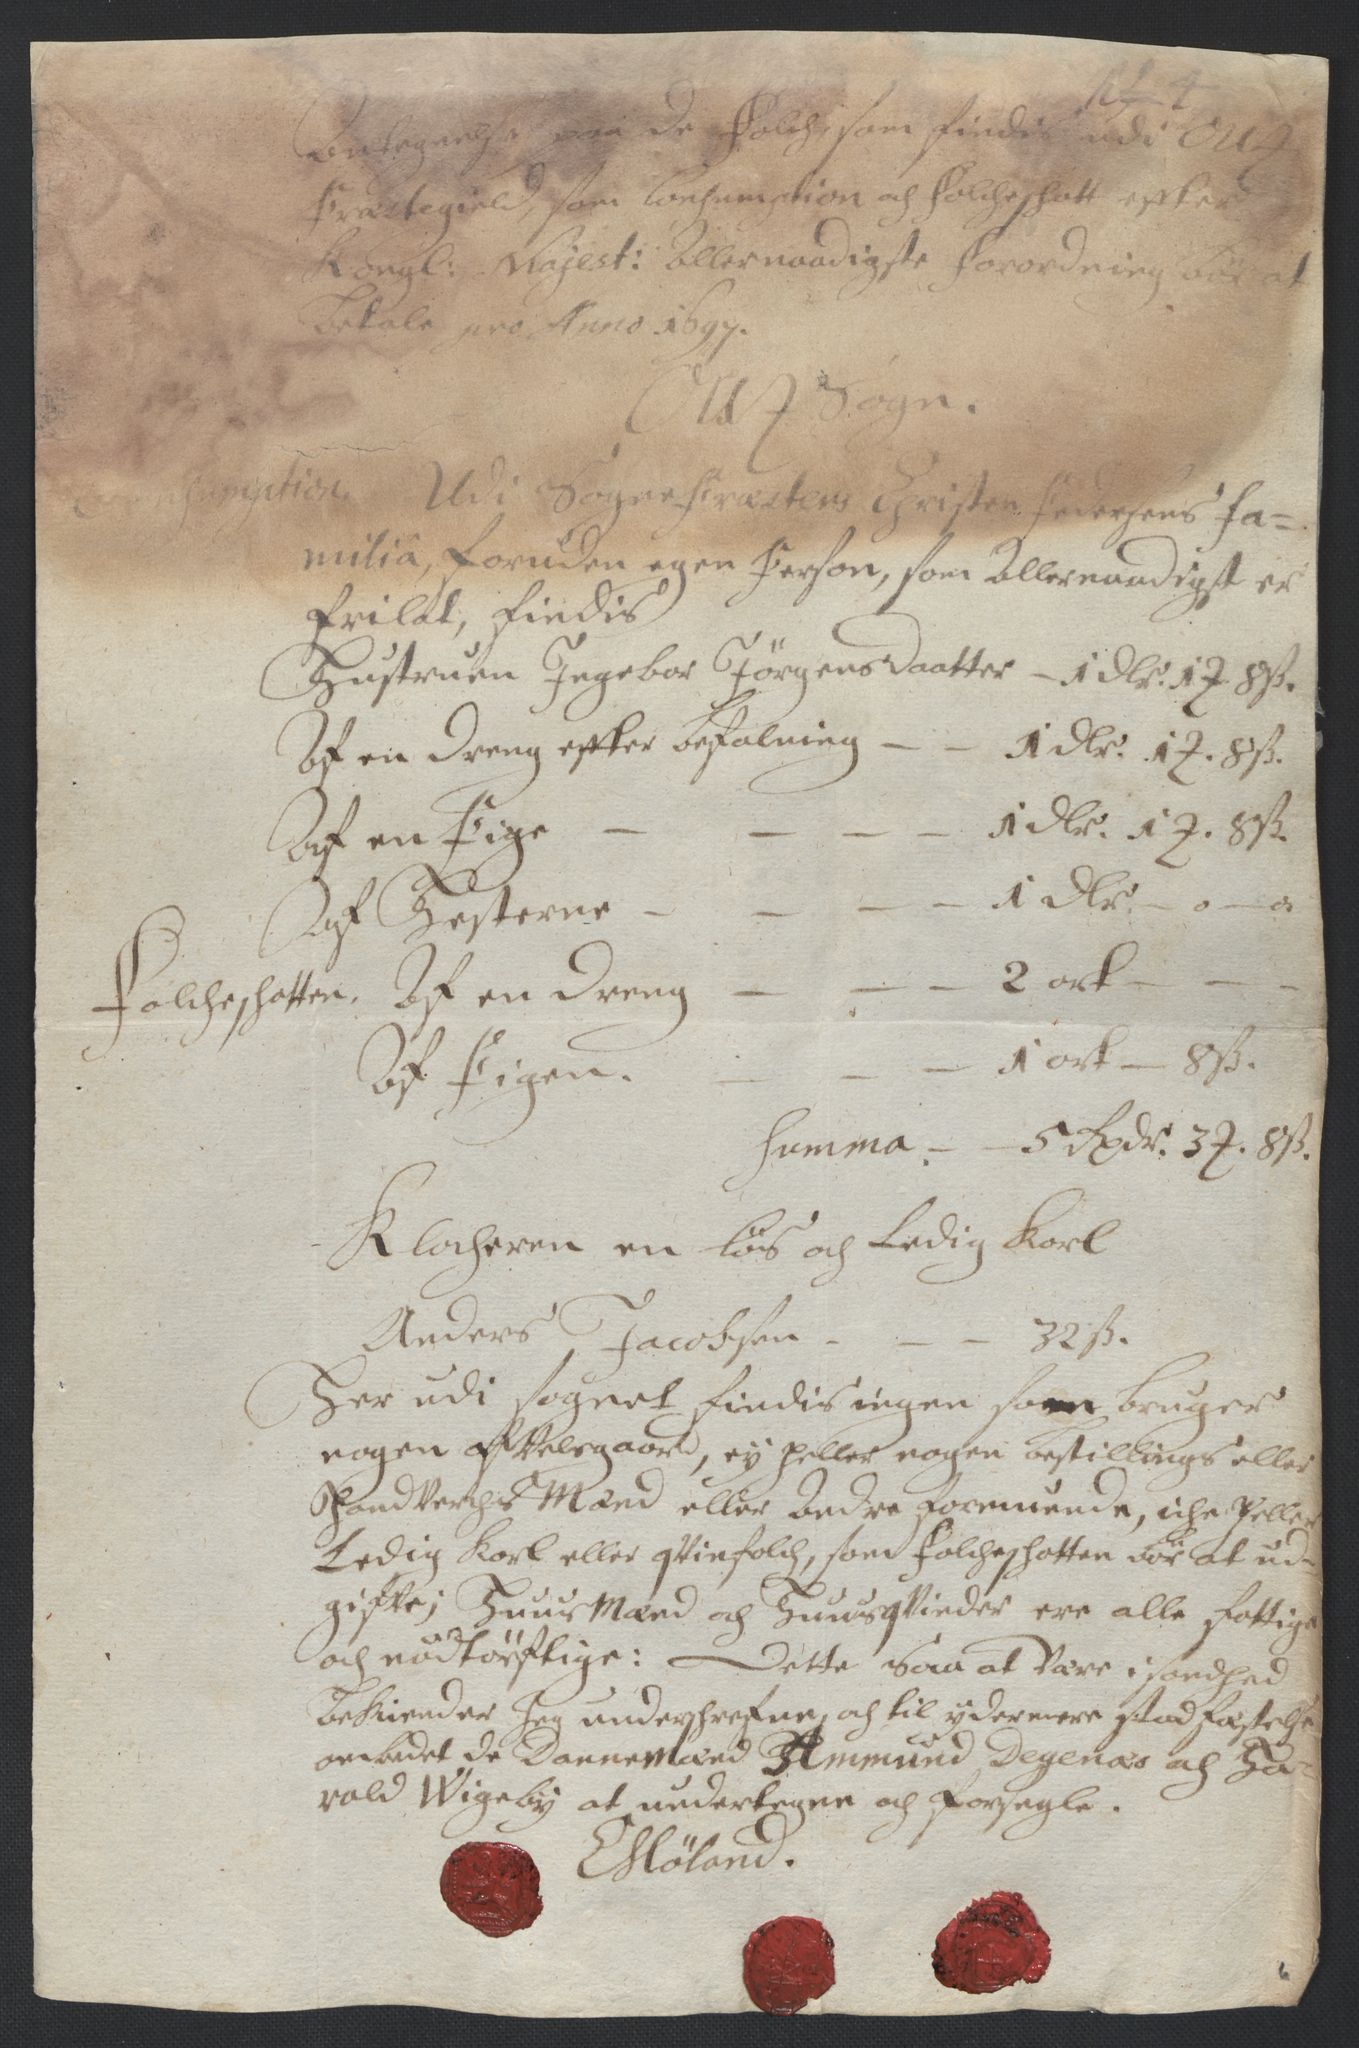 No 4
Antegnelse paa de Folch, som findis udi Olltz
Præstegield, som Consumption och Folcheschatt efter
Kongl: Majest: Allernaadigste Forordning bör at
Betale pro Anno 1697.
Sogn.
Consumption. Udi SognePræstens Christen Pedersens Fa=
milia, foruden egen Person, som Allernaadigst er
frilat, findis
Hustruen Ingebor Jörgensdaatter — 1 dlr. 1 ℥. 8 ß.
Af en dreng efter befalning — — 1 dlr. 1 ℥. 8 ß.
Af en Pige — — — — 1 dlr. 1 ℥. 8 ß.
Af Hesterne — — — — 1 dlr. — o — o
Folcheschatten. Af en dreng — — — 2 ort — — —
Af Pigen. — — — 1 ort — 8 ß.
Summa. — — 5 Rxdr. 3 ℥. 8 ß.
Klocheren en lös och Ledig Karl
Anders Jacobsen - — — 32 ß.
Her udi sognet findis ingen som bruger
nogen afvelsgaard, ey heller nogen bestillings eller
Handverchs Mænd eller bedre formuende, iche heller
Ledig Karl eller qvinfolch, som folcheschatten bör at ud=
gifve; HuusMænd och Huusqvinder ere alle fattige
och nödtörftige: Dette saa at være i sandhed
Bekiender Jeg underschrefne, och til ydermere stadfæstelse
ombedet de DanneMænd Ammund Degenæs och Ha=
rald Wigeby at undertegne och forsegle.
CMöland.
6